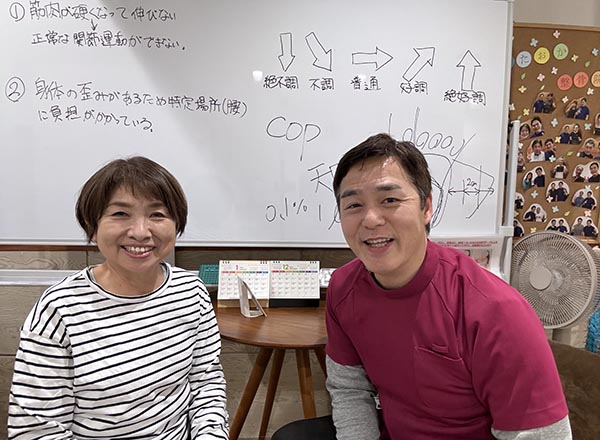 ① 筋肉が硬くなって伸びない
正常な関節運動ができない。
② 身体の歪みがあるため特定場所(腰)
に負担がかかっている。
絶不調 不調 普通 好調 絶好調
COP
1dgooy
天
0.1%
2cm
たおか
整体院
1
12